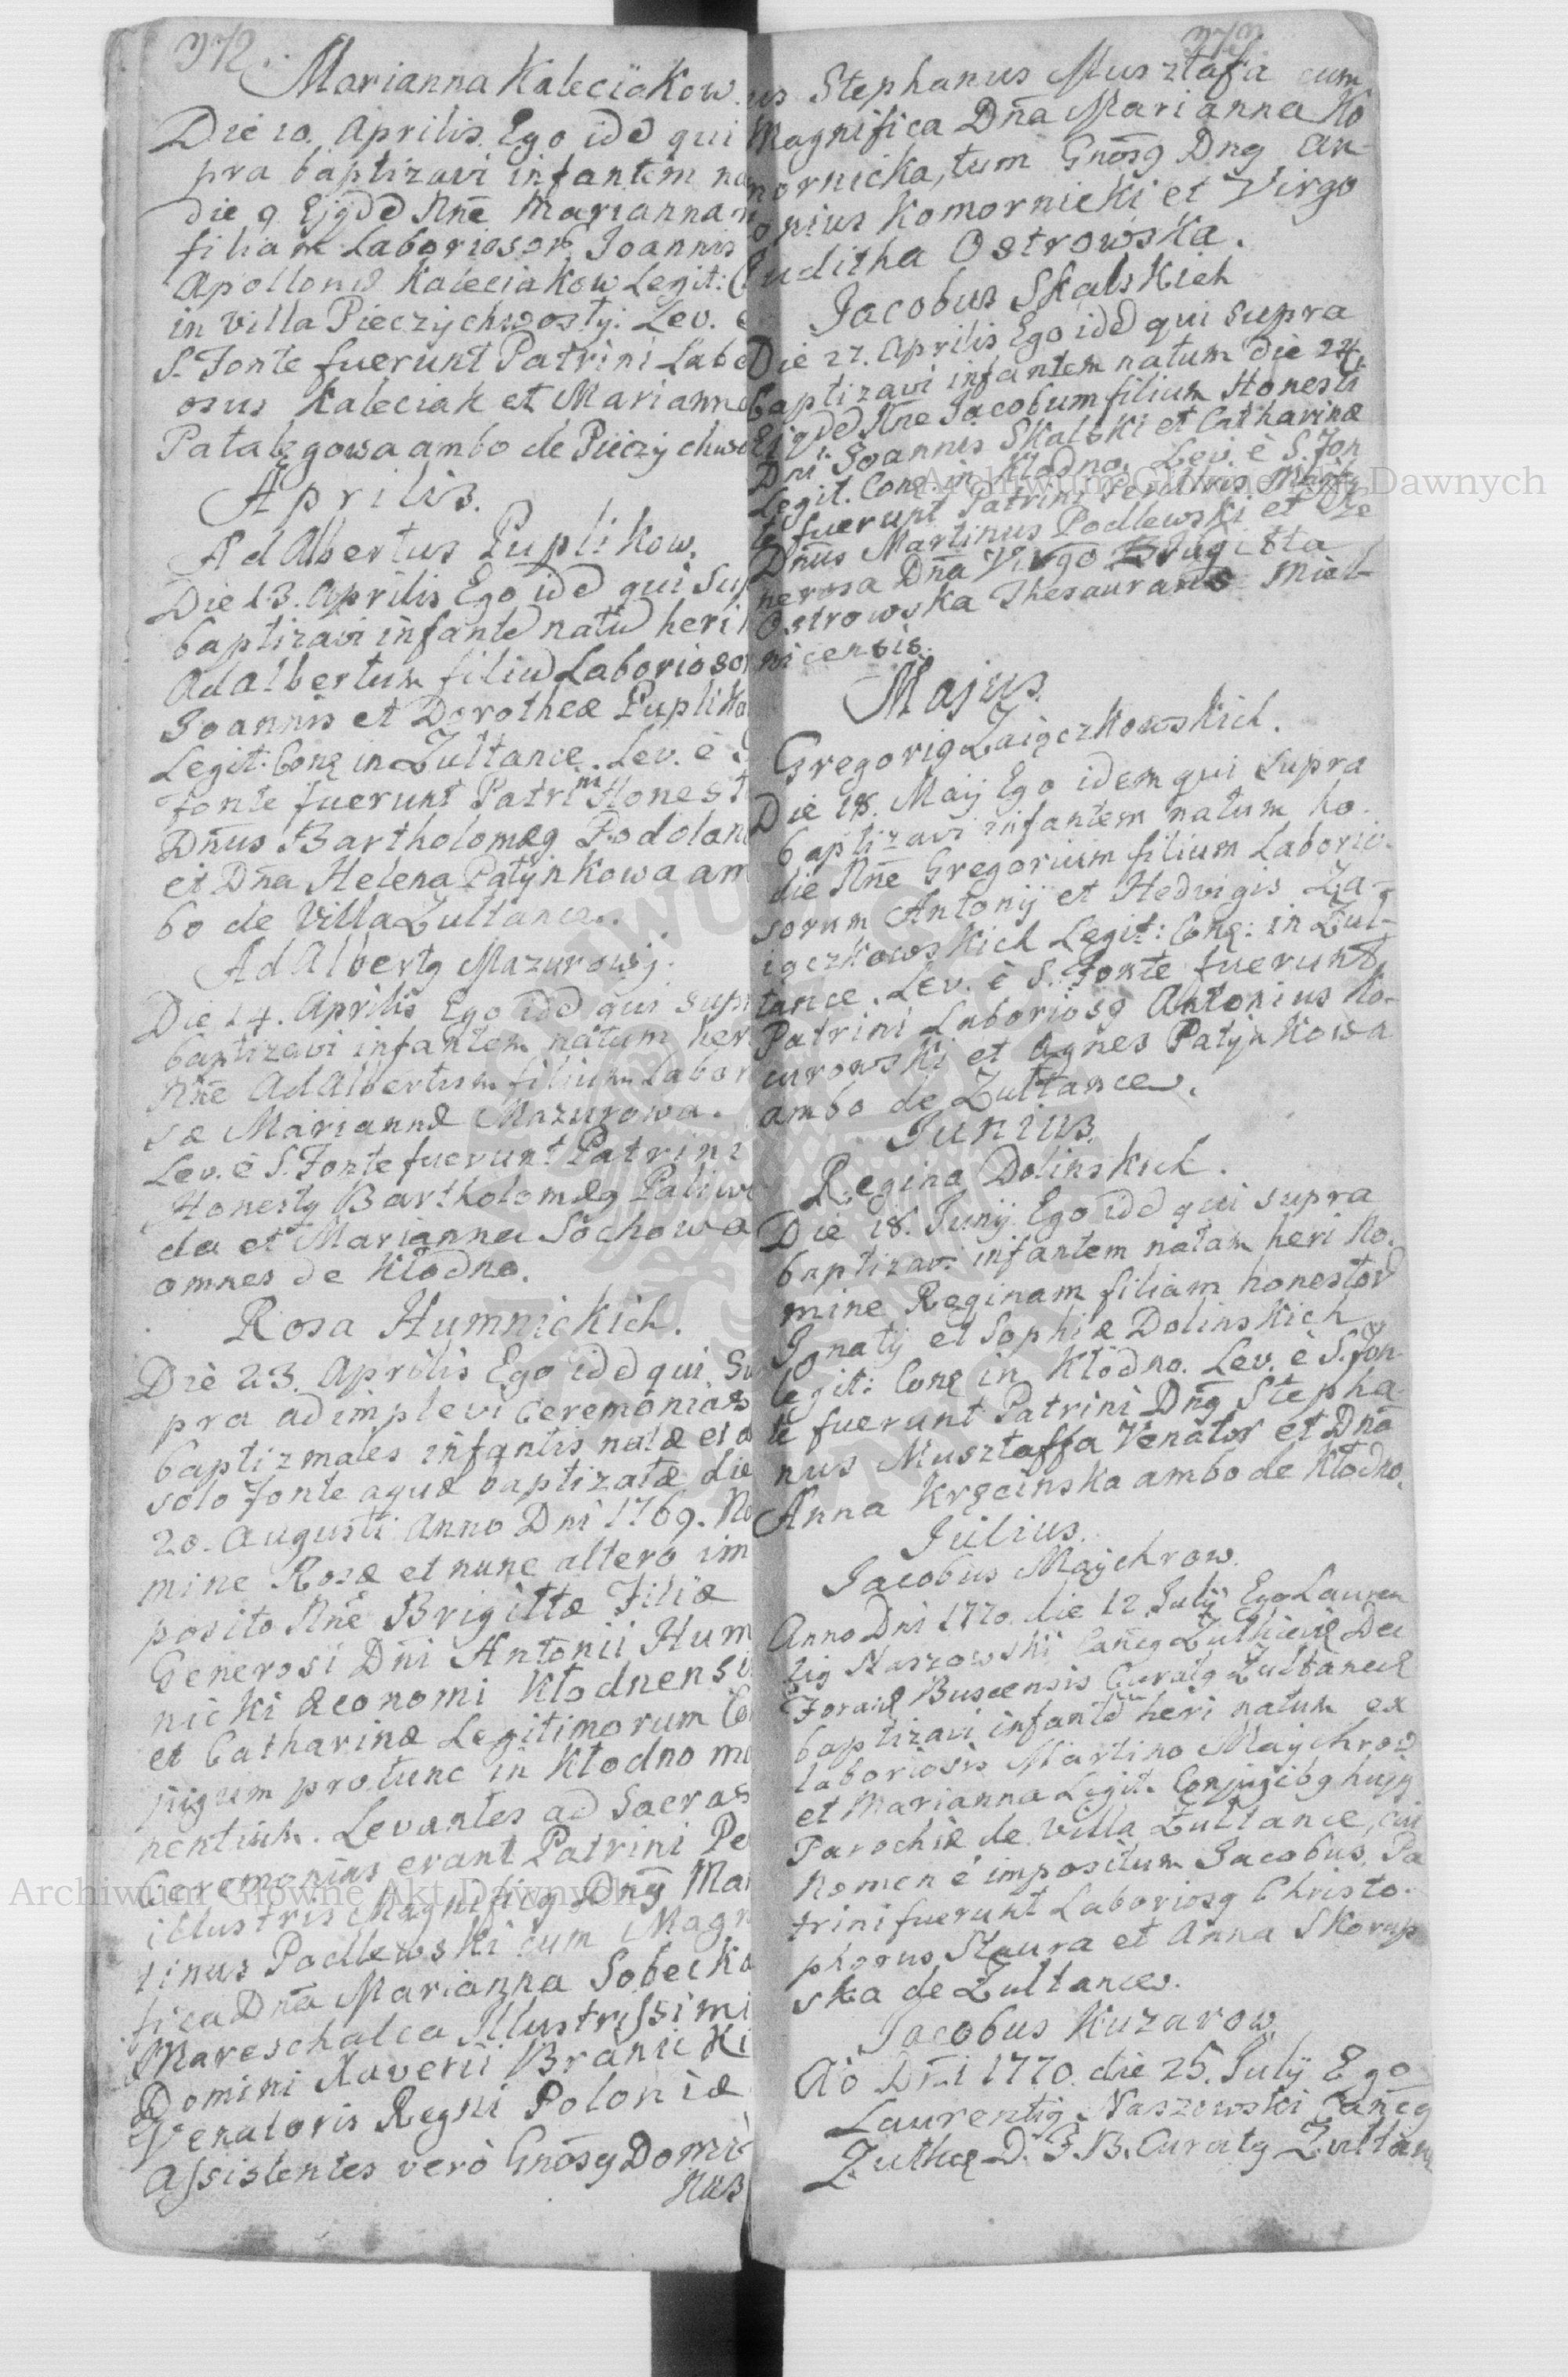 372.
Marianna Kaleciakow.
Die 10. Aprilis. Ego idē qui
pra baptizavi infantem na
die 9 Ejqdē Nnē Mariannam
filiam Laboriosor. Joannis
Apollonis Kaleciakow Legit:
in villa Pieczychwosty: Lev. e
S. Fonte fuerunt Patrini Labo
osus Kaleciak et Marianna
Patalągowa ambo de Pieczychwo
Aprilis.
AdAlbertus Puplikow.
Die 13. Aprilis Ego idē qui Sup
baptizavi infantē natū heri
AdAlbertum filiū Laborioso
Joannis et Dorotheæ Pupliko
Legit: Conę in Zultance. Lev. è S
fonte fuerunt Patrini Honest
Dn̄us Bartholomęg Podolan
et Dn̄a Helena Patynkowa am
bo de Villa Zultance.
AdAlbertg Mazurowy.
Die 14. Aprilis Ego idē qui Sup
baptizavi infantem natum her
Nn̄e AdAlbertum filium Labor
sæ Mariannæ Mazurowa.
Lev. è S. Fonte fuerunt Patrini
Honestg Bartholomæg Paliwo
da et Marianna Sochowa
omnes de Kłodno.
Rosa Humnickich.
Die 23. Aprilis Ego idē qui Su
pra adimplevi Ceremonias
baptizmales infantis natæ et a
solo Fonte aquæ baptizatæ die
20. Augusti Anno Dn̄i 1769. No
mine Rosæ et nunc altero im
posito Nn̄e Brigittæ Filiæ
Generosi Dn̄i Antonii Hum
nicki œconomi Kłodnensi
et Catharinæ Legitimorum Co
njugum protunc in Kłodno ma
nentium. Levantes ad Sacras
Ceremonias erant Patrini Pe
illustris Magnificg Dn̄g Mar
tinus Podlewski cum Magn
fica Dn̄a Marianna Sobecka
Mareschalca Illustrissimi
Domini Xaverii Branicki
Venatoris Regni Poloniæ
Assistentes verò Gnōsg Domi
nus
373.
us Stephanus Musztafa cum
Magnifica Dn̄a Marianna Ko
mornicka, tum Gnōsg Dng An-
onius Komornicki et Virgo
Juditha Ostrowska.
Jacobus Skalskich
Die 27. Aprilis Ego idē qui supra
baptizavi infantem natum die 24.
Ejqdē Nn̄e Jacobum filium Honesti
Dn̄i Joannis Skalski et Catharinæ
Legit. Conę. in Kłodno. Lev. è S. Fon
te fuerunt Patrini Perillris Magfg
Dn̄us Martinus Podlewski et Ge
nerosa Dn̄a Virgo Brugitta
Ostrowska Thesauraris Miel-
nicensis.
Majus.
Gregorig Zaięczkowskich.
Die 18. Maij Ego idem qui supra
baptizavi infantem natum ho-
die Nn̄e Gregorium filium Laborio-
sorum Antonij et Hedvigis Za-
ięczkowskich Legit: Conę: in Zul-
tance. Lev. è S. Fonte fuerunt
Patrini Laboriosg Antonius Ko-
curowski et Agnes Patynkowa
ambo de Zultance.
Junius.
Regina Dolinskich.
Die 18. Junij Ego idē qui supra
baptizavi infantem natam heri No-
mine Reginam filiam honestorū
Ignatij et Sophiæ Dolinskich
legit: Conę in Kłodno. Lev. è S. Fon-
te fuerunt Patrini Dn̄g Stepha-
nus Musztaffa Venator et Dn̄a
Anna Kręcinska ambo de Kłodno.
Julius.
Jacobus Maychrow.
Anno Dn̄i 1770. die 12 Julij Ego Lauren
tig Naszowski Canc̄g Zulkieviē Dec
Foraneg Buscensis Curatg Zultanceē
baptizavi infantē heri natum ex
laboriosis Martino Maychrow
et Marianna Legit. Conjugibg hujg
Parochiæ de Villa Zultance, cui
Nomen ē impositum Jacobus. Pa
trini fuerunt Laboriosg Christo-
phorus Staura et Anna Skorup
ska de Zultance.
Jacobus Kuzarow.
Aō Dn̄i 1770. die 25. Julij Ego
Laurentig Naszowski Canc̄g
Zulkę D. F. B. Curatg Zultanę
Archiwum Główne Akt Dawnych
Archiwum Główne Akt Dawnych